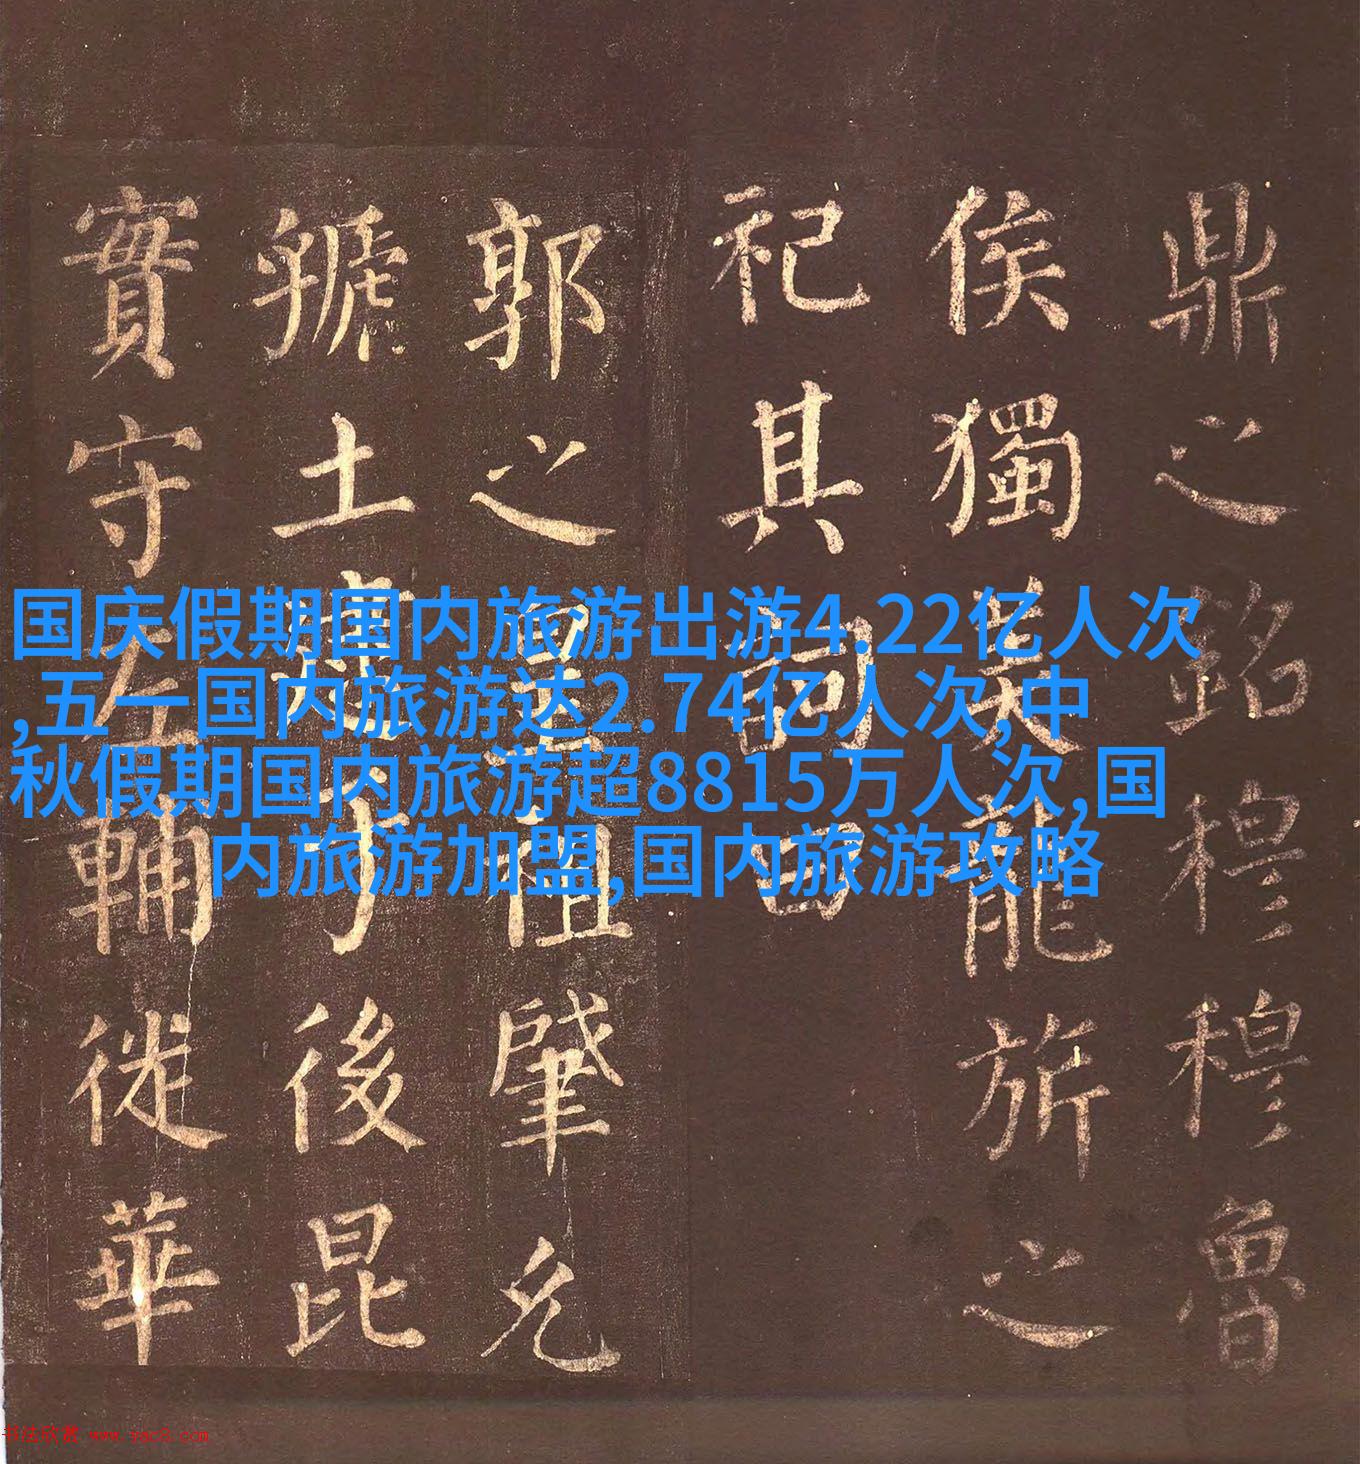 鼎之銘穆穆魯
侯獨美龍旂之
祀其詞曰
郭之皇祖肇允
虢土于後昆
實守左輔徙華
国庆假期国内旅游出游4.22亿人次
,五一国内旅游达2.74亿人次,中
秋假期国内旅游超8815万人次,国
内旅游加盟,国内旅游攻略
书法欣赏 www.yac8.com